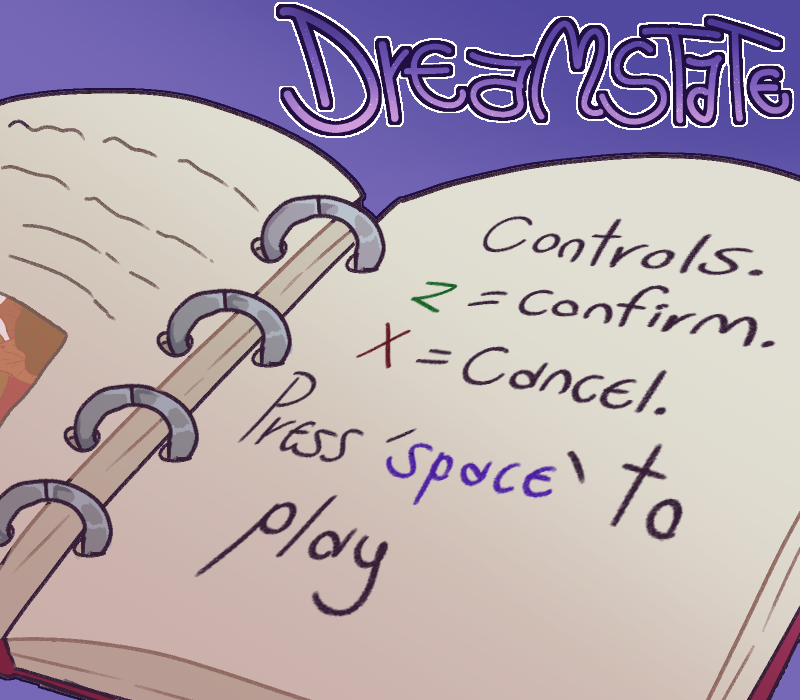 DreamState
Controls.
Z = Confirm.
X = Cancel.
Press 'space' to
play